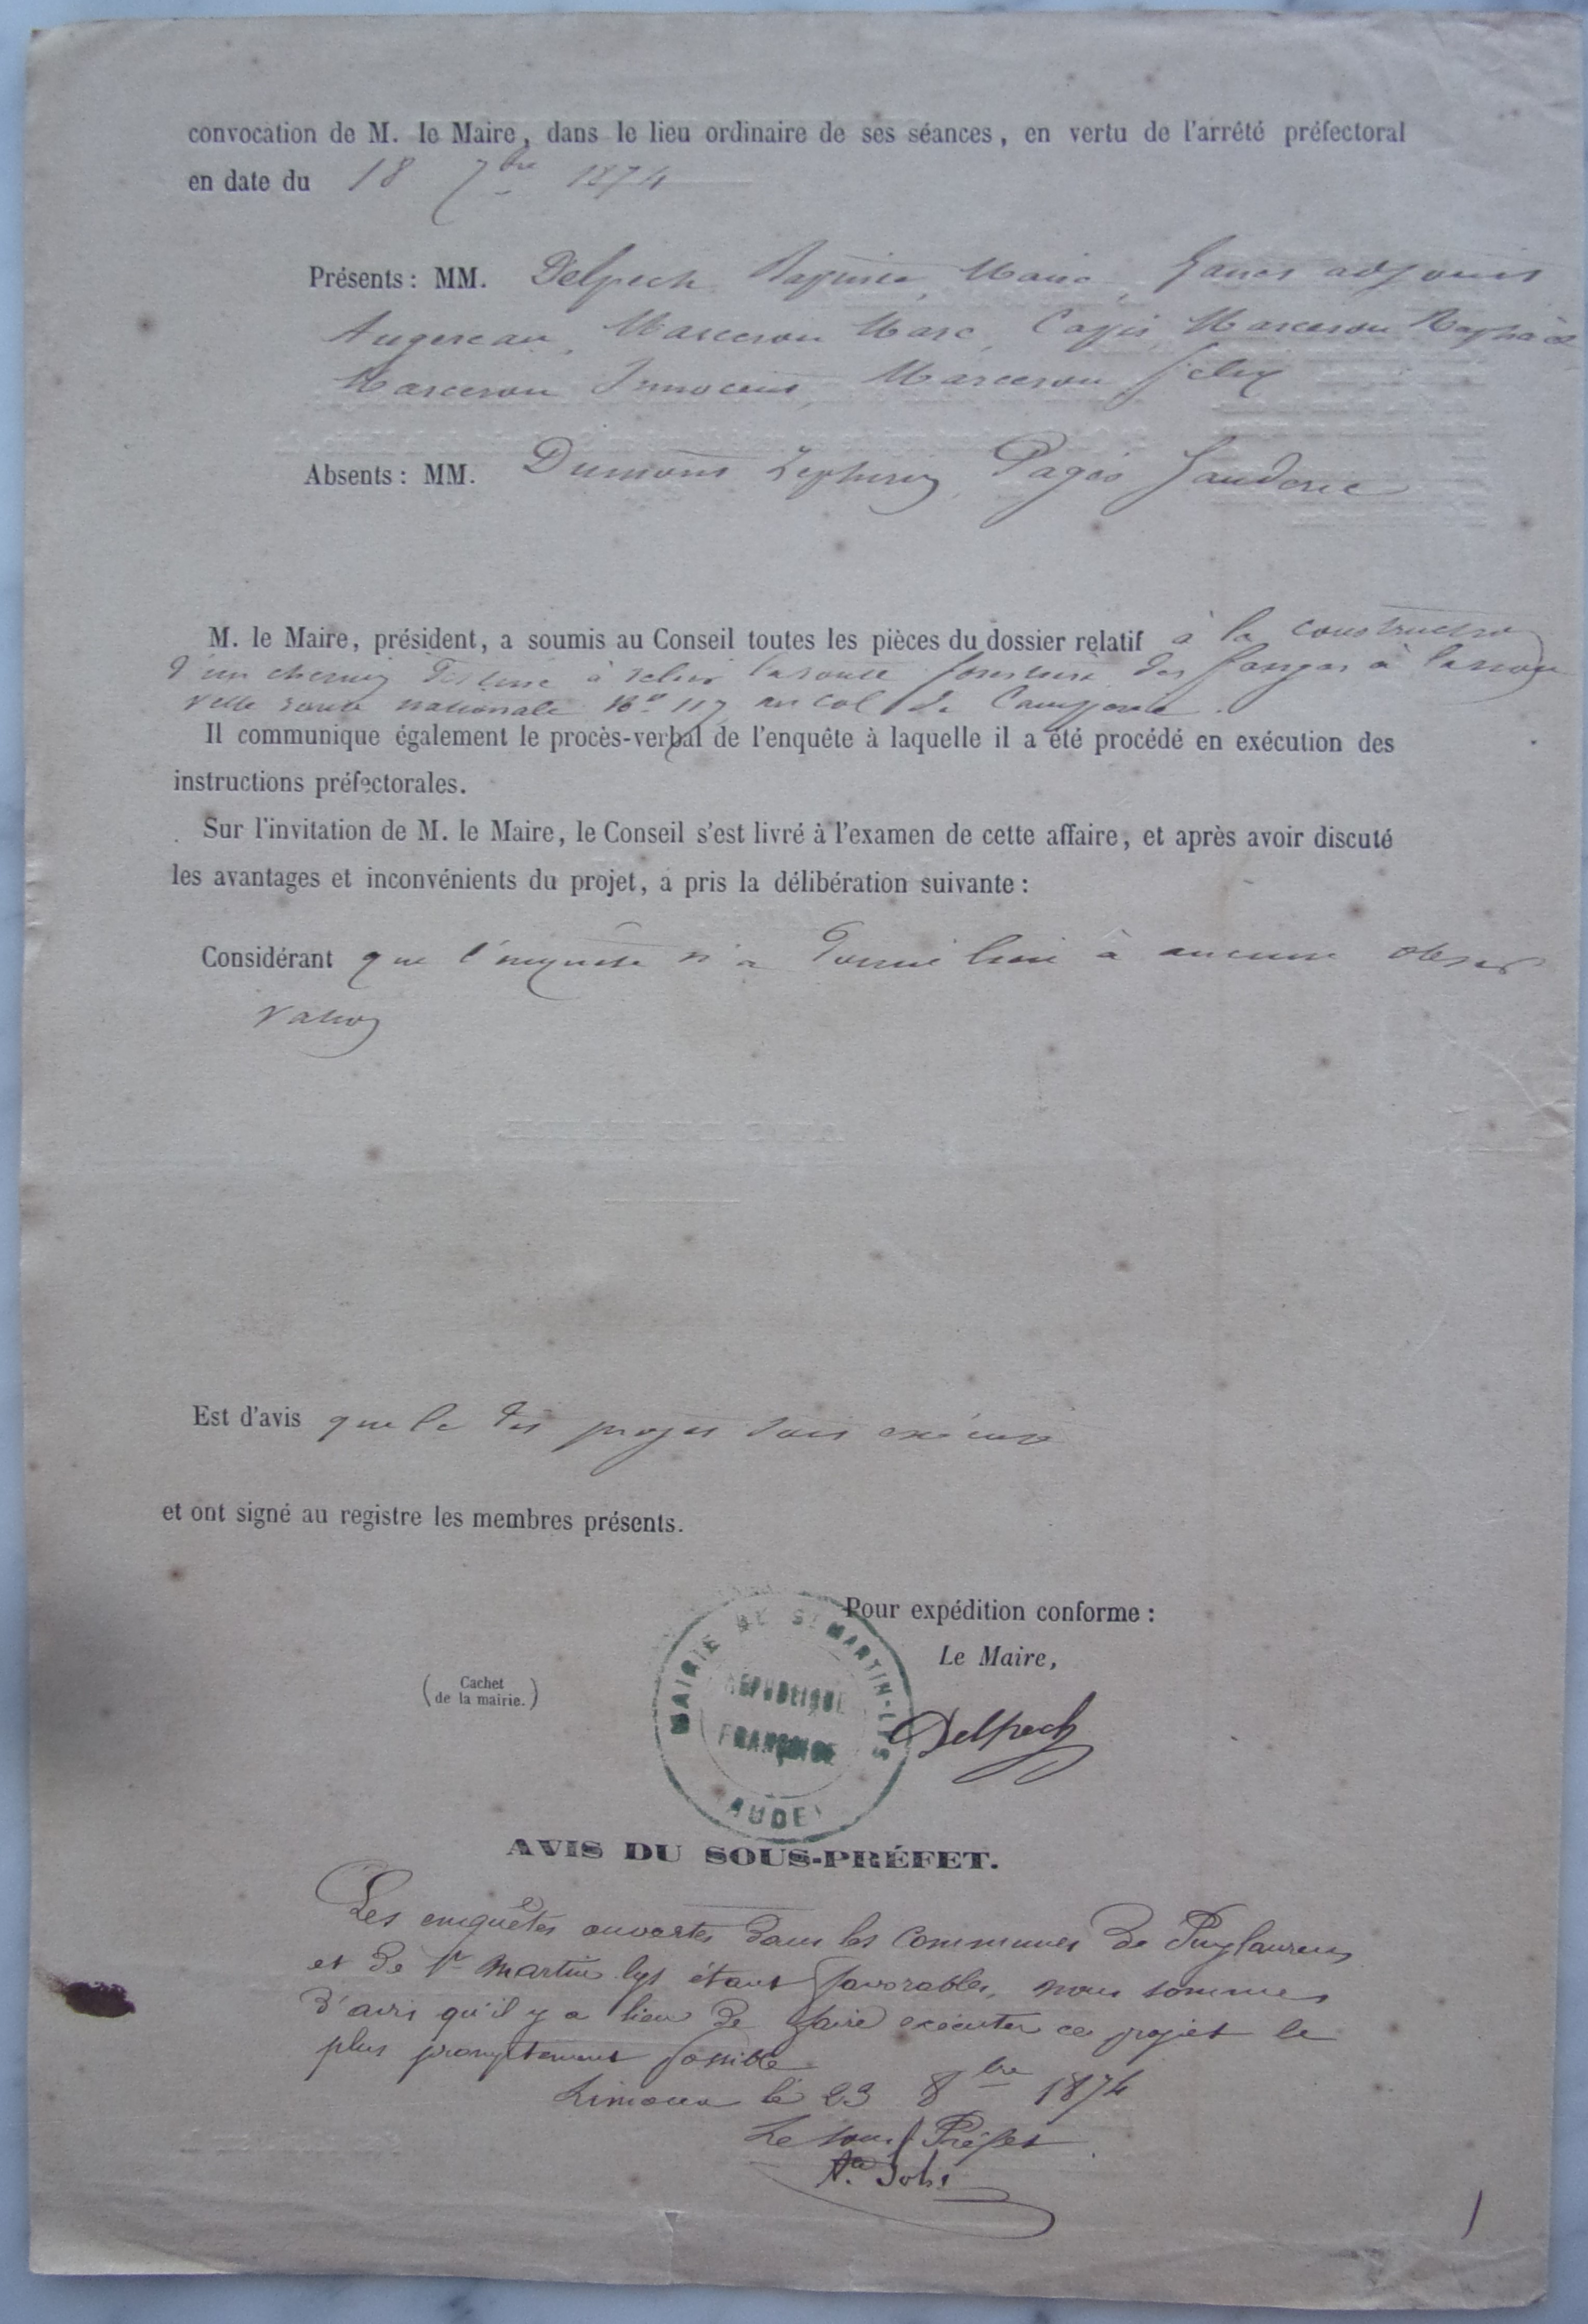 convocation de M. le Maire, dans le lieu ordinaire de ses séances, en vertu de l'arrêté préfectoral
en date du 18 7bre 1874
Présents : MM. Delpech Maire, adjoint
Augereau, Marceron Marc, Marceron Raphaël
Marceron Innocent, Marceron felix
Absents : MM. Dumons Zephirin, Pagès Gauderic
M. le Maire, président, a soumis au Conseil toutes les pièces du dossier relatif à la construction
d'un chemin destiné à relier la route forestière des fanges à la nou
velle route nationale No 117 au col de Camperie.
Il communique également le procès-verbal de l'enquête à laquelle il a été procédé en exécution des
instructions préfectorales.
Sur l'invitation de M. le Maire, le Conseil s'est livré à l'examen de cette affaire, et après avoir discuté
les avantages et inconvénients du projet, a pris la délibération suivante :
Considérant que l'enquête n'a donné lieu à aucune obser
vation
Est d'avis que le dit projet soit exécuté
et ont signé au registre les membres présents.
Pour expédition conforme :
Le Maire,
(Cachet
de la mairie.)
MAIRIE DE ST MARTIN-LYS
RÉPUBLIQUE
FRANÇAISE
(AUDE)
Delpech
AVIS DU SOUS-PRÉFET.
Les enquêtes ouvertes dans les communes de Puylaurens
et de St Martin lys étant favorables, nous sommes
d'avis qu'il y a lieu de faire exécuter ce projet le
plus promptement possible
Limoux le 23 8bre 1874
Le sous Préfet